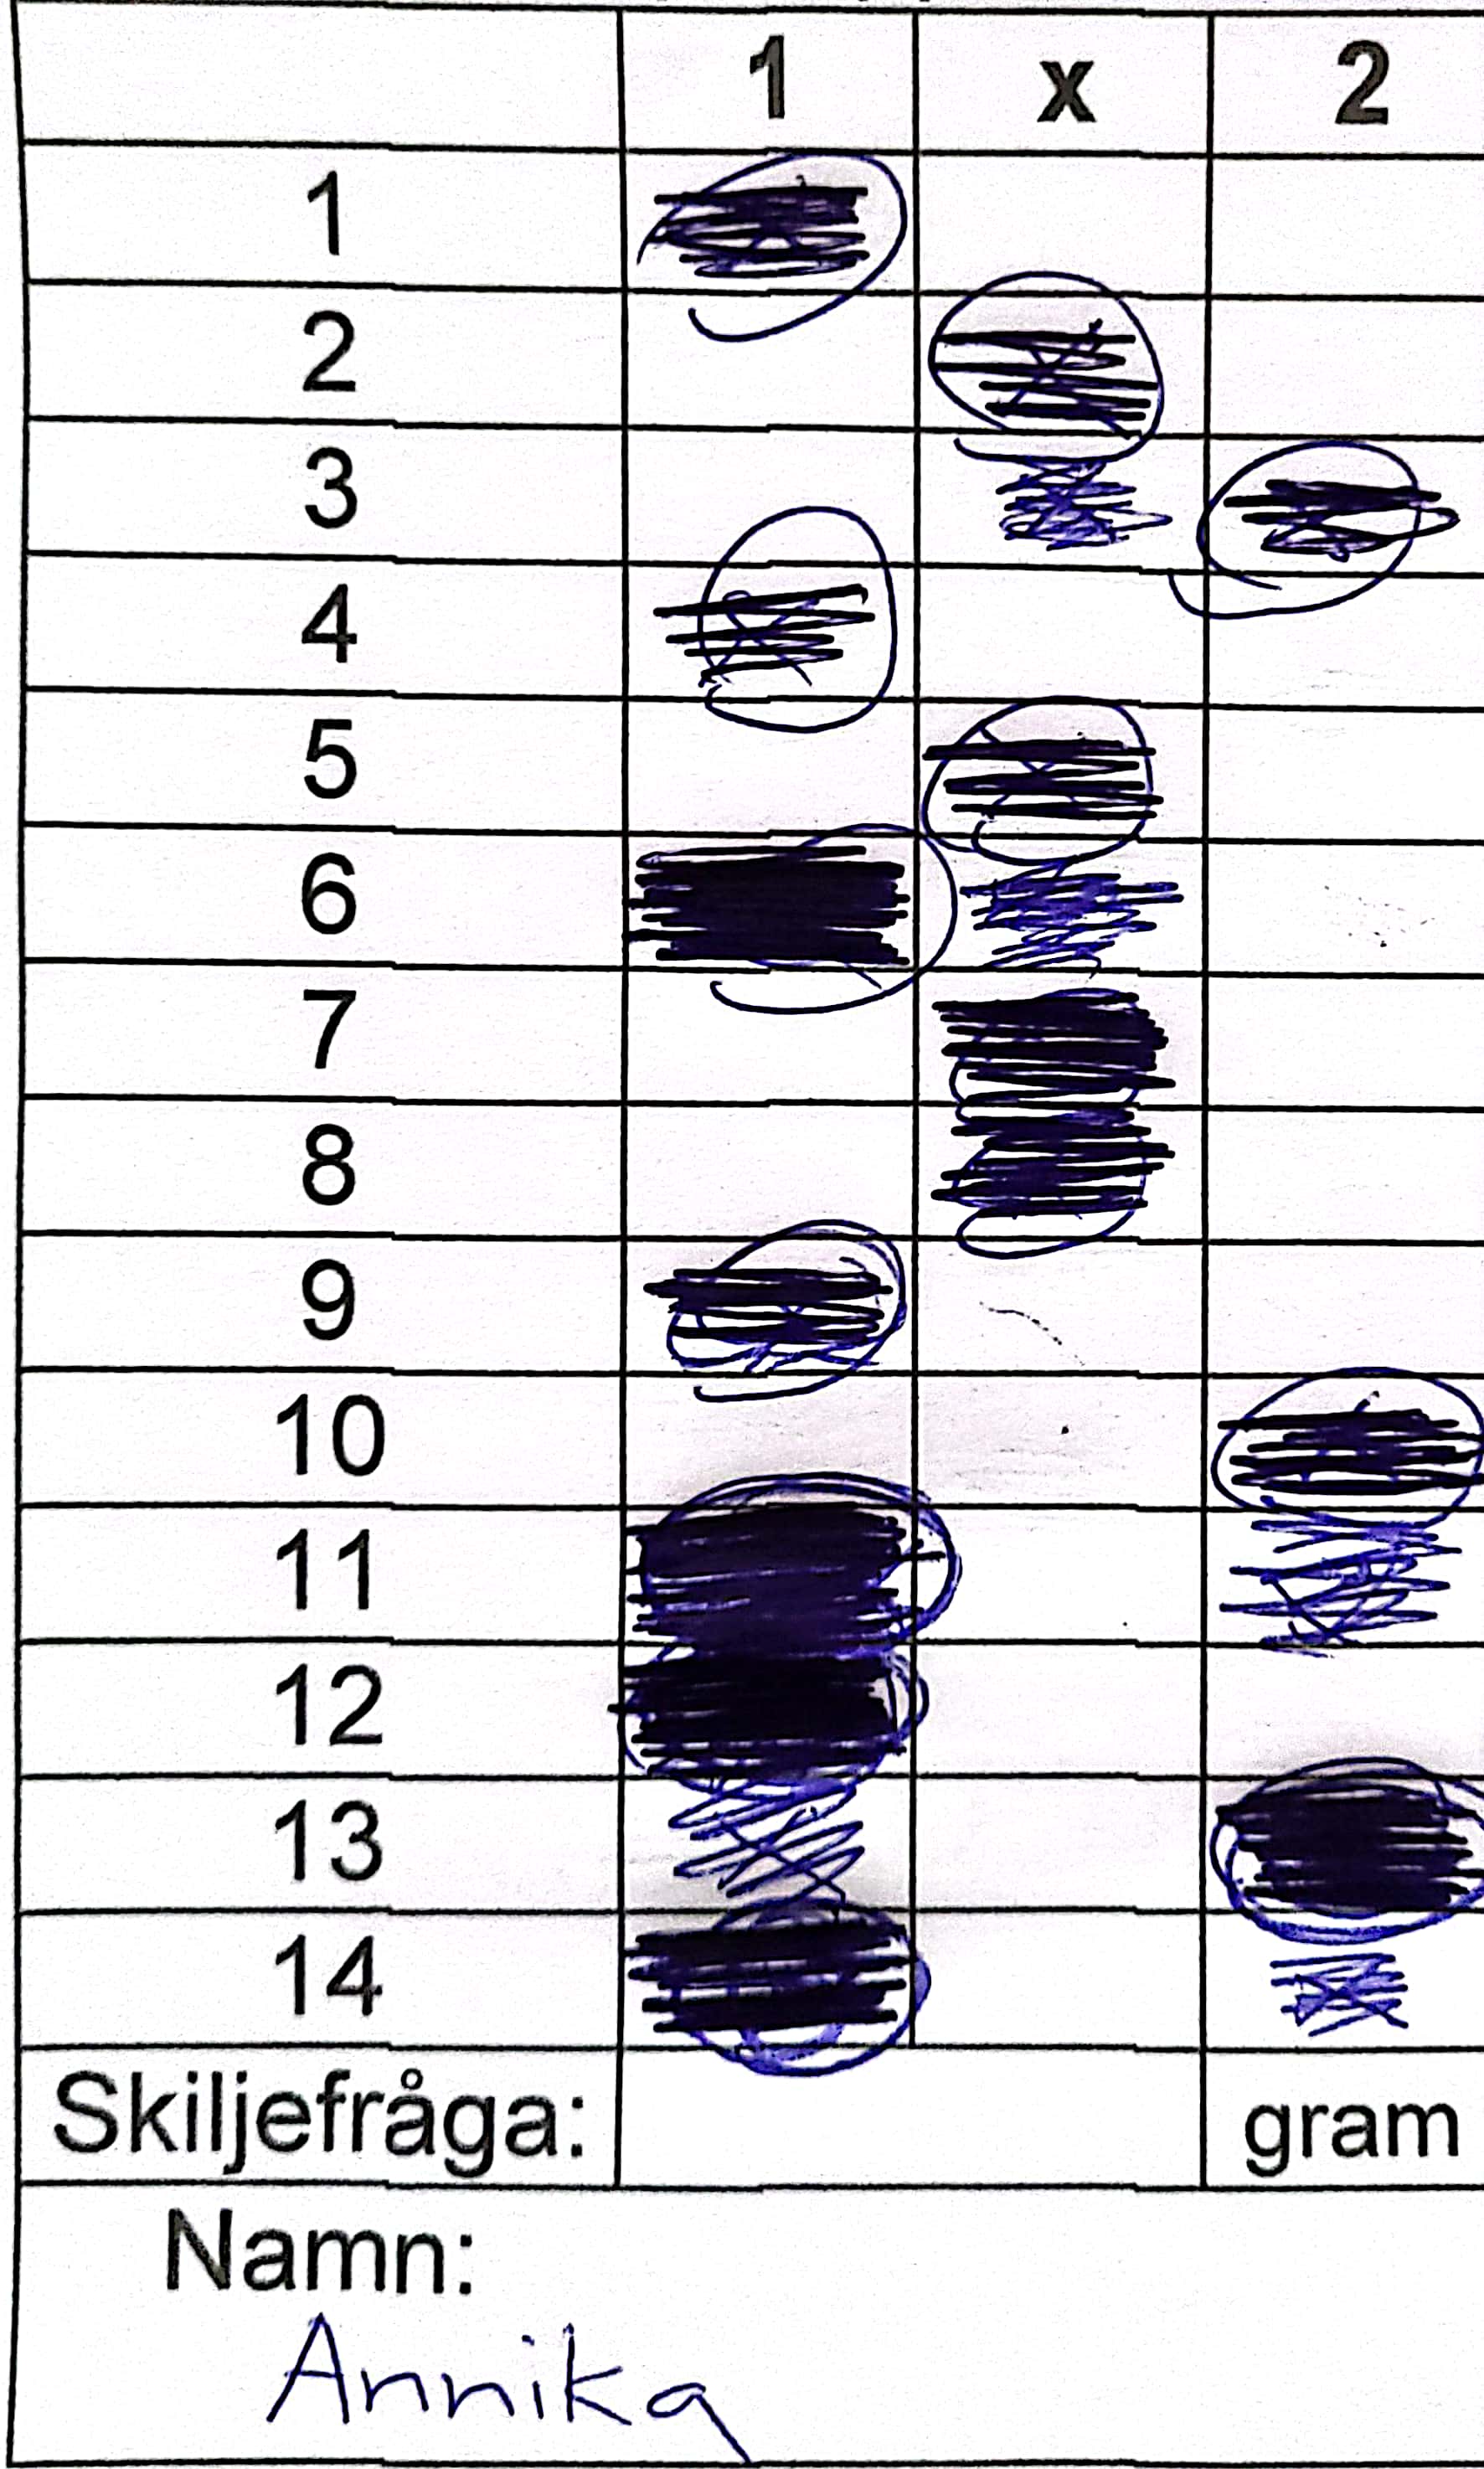 1 x 2
1
2
3
4
5
6
7
8
9
10
11
12
13
14
Skiljefråga: gram
Namn:
Annika